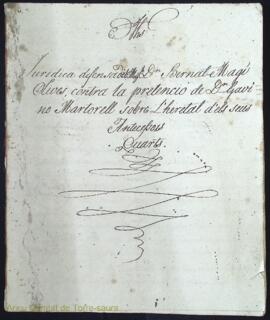 Juridica defensa del Sr. Dn. Bernat Magí
Olives, contra la pretencio de Dn. Gavi-
no Martorell sobre l'heretat dels seus
Antecessors
Quarts.
Arxiu Comtal de Torre-saura